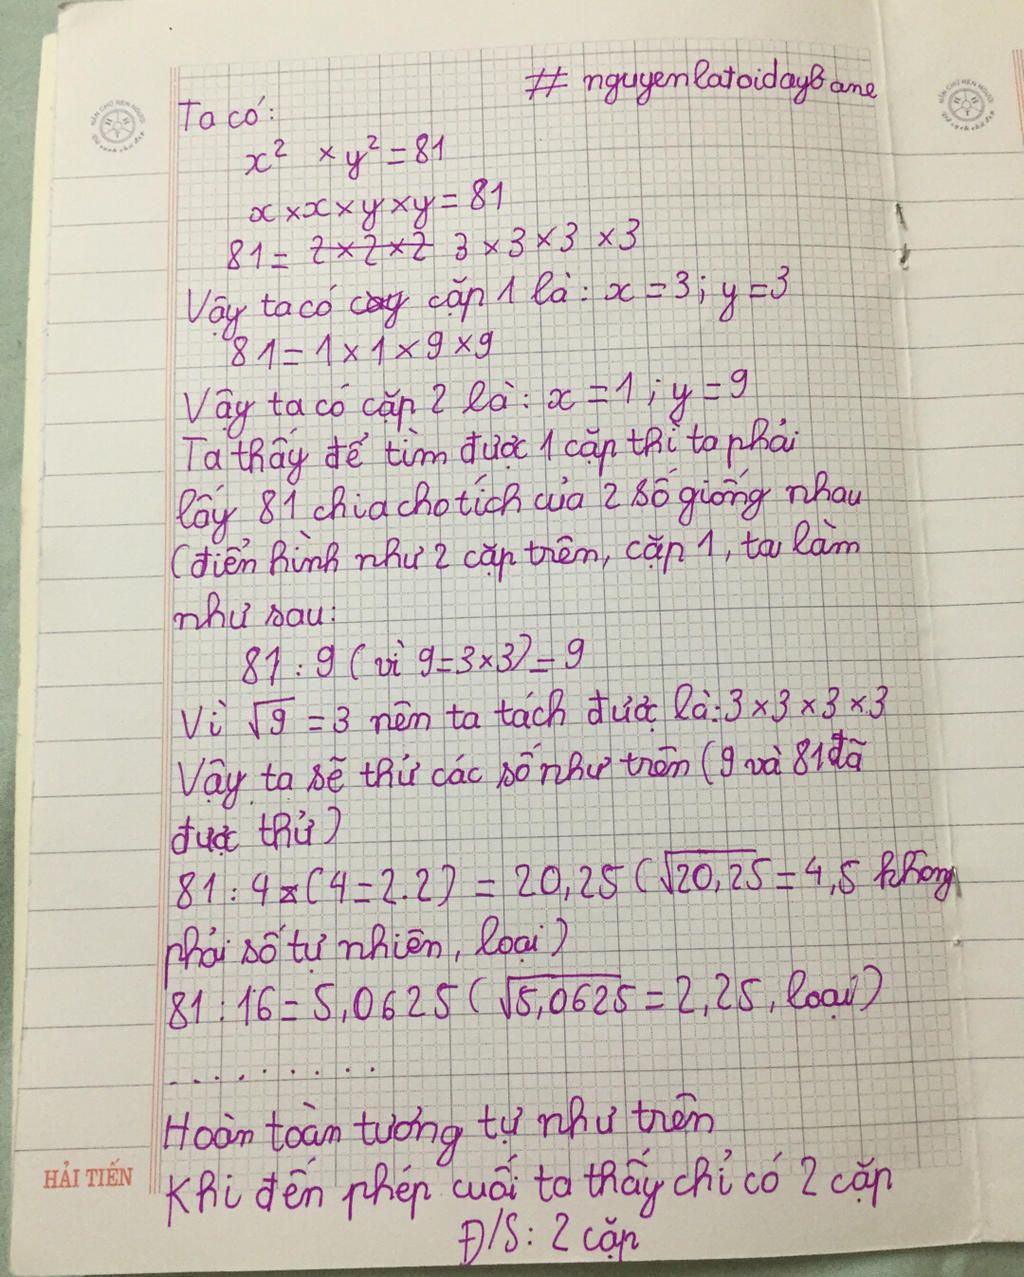 # nguyenlatoidayBane
Ta có:
x² × y² = 81
x × x × y × y = 81
81 = 2 × 2 × 2 3 × 3 × 3 × 3
Vậy ta có cặp 1 là: x = 3; y = 3
81 = 1 × 1 × 9 × 9
Vậy ta có cặp 2 là: x = 1; y = 9
Ta thấy để tìm được 1 cặp thì ta phải
lấy 81 chia cho tích của 2 số giống nhau
(điển hình như 2 cặp trên, cặp 1, ta làm
như sau:
81 : 9 (vì 9 = 3 × 3) = 9
Vì √9 = 3 nên ta tách được là: 3 × 3 × 3 × 3
Vậy ta sẽ thử các số như trên (9 và 81 đã
được thử)
81 : 4 (4 = 2.2) = 20,25 (√20,25 = 4,5 không
phải số tự nhiên, loại)
81 : 16 = 5,0625 (√5,0625 = 2,25, loại)
..........
Hoàn toàn tương tự như trên
Khi đến phép cuối ta thấy chỉ có 2 cặp
Đ/S: 2 cặp
HẢI TIẾN